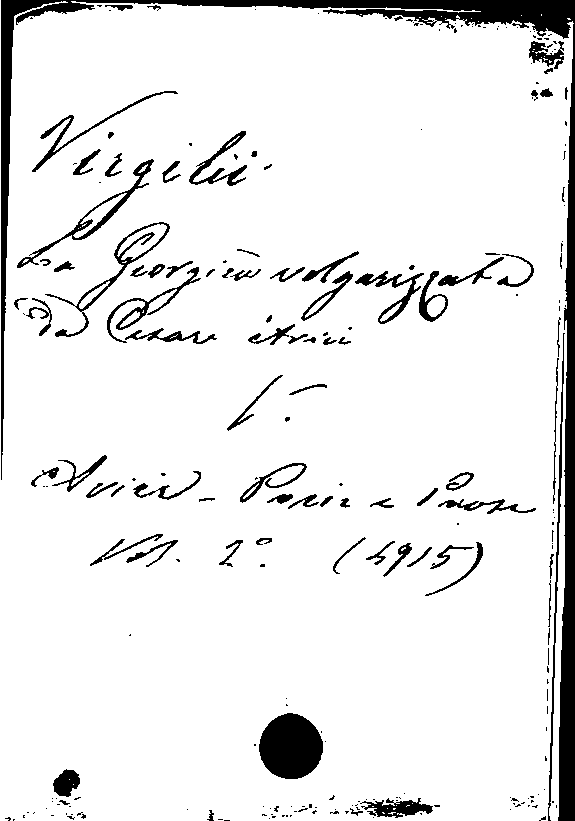 Virgilii.
La Georgica volgarizzata
da Cesare Arici
V.
Arici - Poesie e Prose
Vol. 2°. (4915)